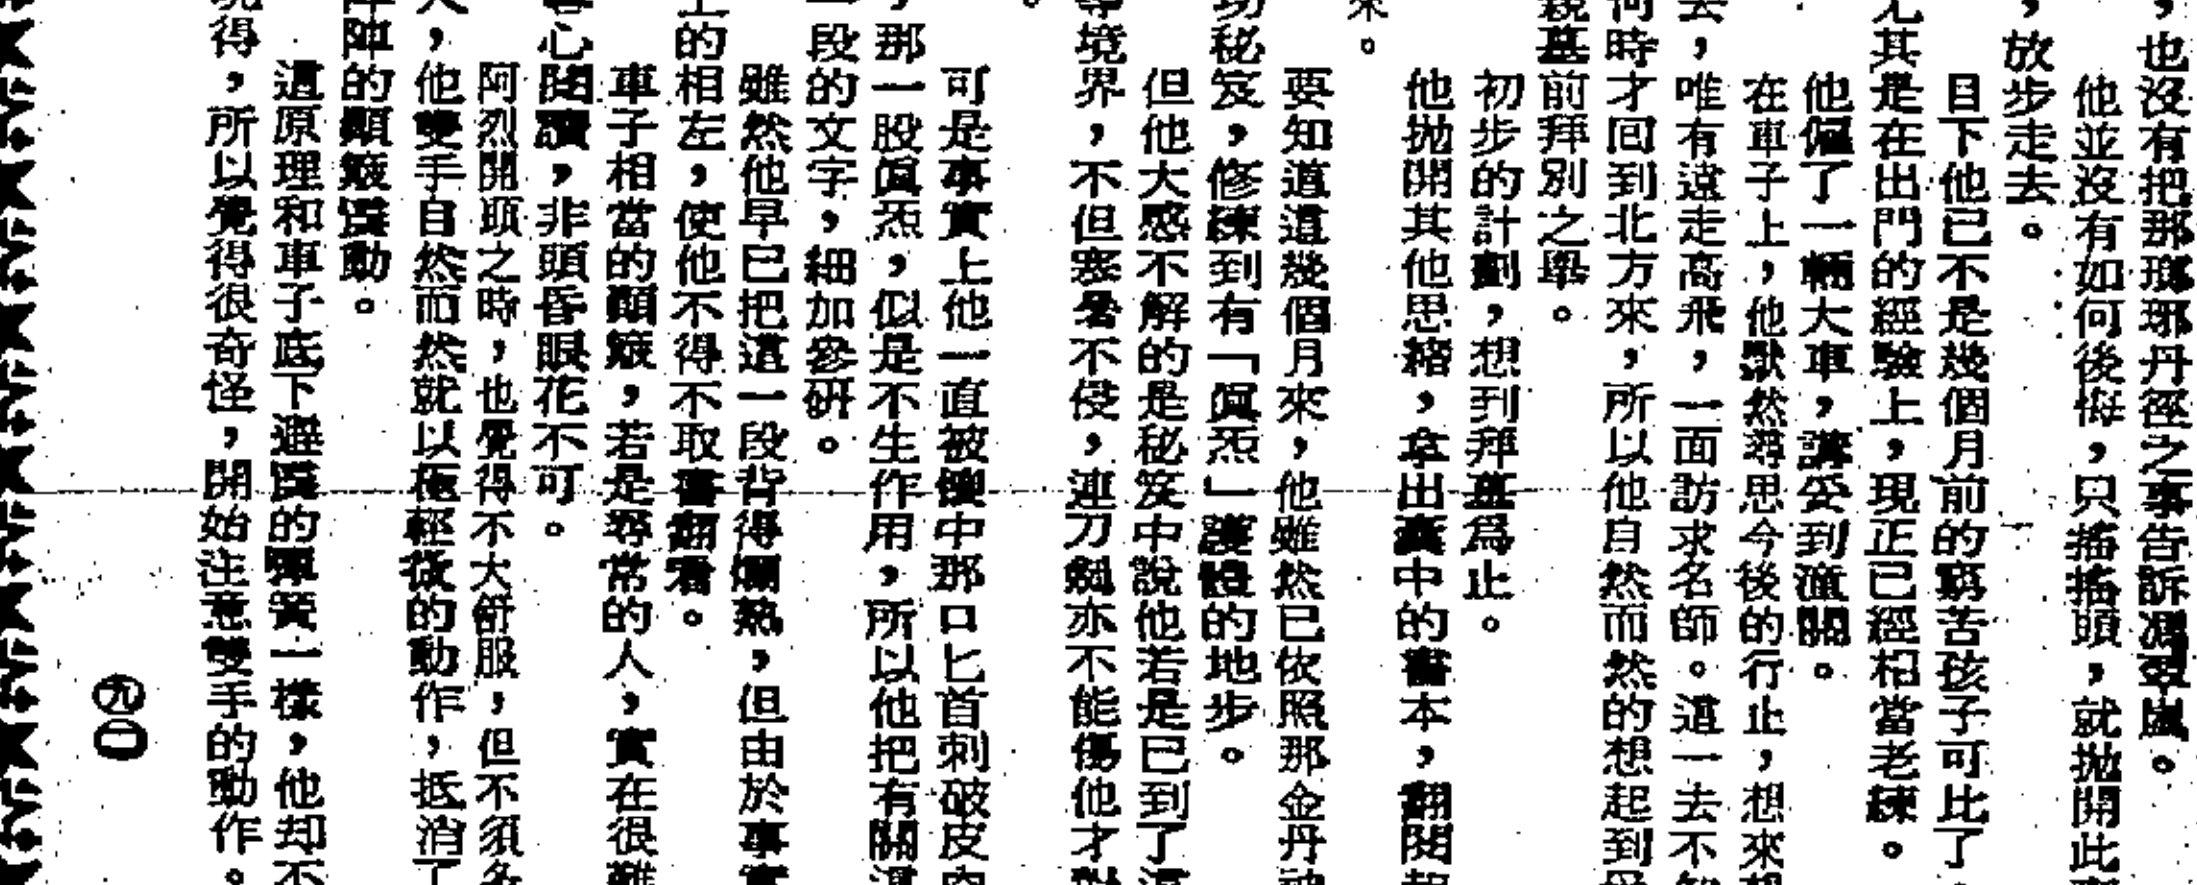 ，也沒有把那瑯琊丹徑之事告訴馮翠嵐。
他並沒有如何後悔，只搖搖頭，就拋開此
，放步走去。
目下他已不是幾個月前的窮苦孩子可比了，
尤其是在出門的經驗上，現正已經相當老練。
他僱了一輛大車，講妥到潼關。
在車子上，他默然尋思今後的行止，想來想
去，唯有遠走高飛，一面訪求名師。這一去不知
何時才回到北方來，所以他自然而然的想起到母
親墓前拜別之舉。
初步的計劃，想到拜墓為止。
他拋開其他思緒，拿出囊中的書本，翻閱起
來。
要知道這幾個月來，他雖然已依照那金丹神
功秘笈，修練到有「真炁」護體的地步。
但他大惑不解的是秘笈中說他若是已到了這
等境界，不但寒暑不侵，連刀劍亦不能傷他才對
。
可是事實上他一直被懷中那口匕首刺破皮肉
，那一股真炁，似是不生作用，所以他把有關這
一段的文字，細加參研。
雖然他早已把這一段背得爛熟，但由於事實
上的相左，使他不得不取書翻看。
車子相當的顛簸，若是尋常的人，實在很難
心閱讀，非頭昏眼花不可。
阿烈開頭之時，也覺得不大舒服，但不須多
久，他雙手自然而然就以極輕微的動作，抵消了
陣陣的顛簸震動。
這原理和車子底下避震的彈簧一樣，他却不
得，所以覺得很奇怪，開始注意雙手的動作。
九〇